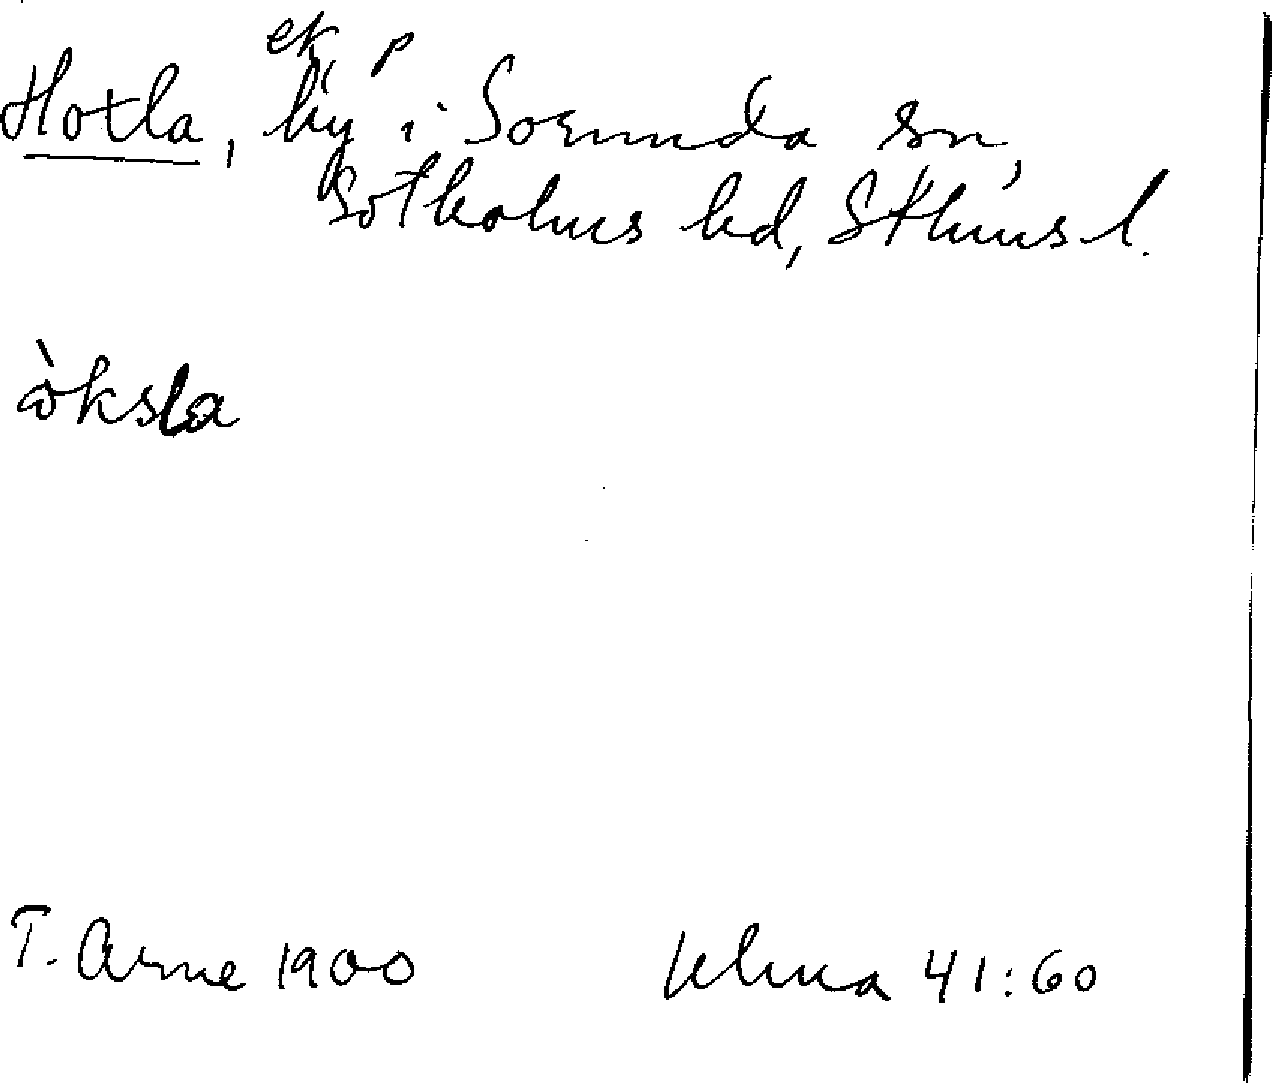 ek, p
Hotla, by i Sorunda sn,
Sotholms hd, Sthms l.
òksla
T. Arne 1900 Ulma 41:60